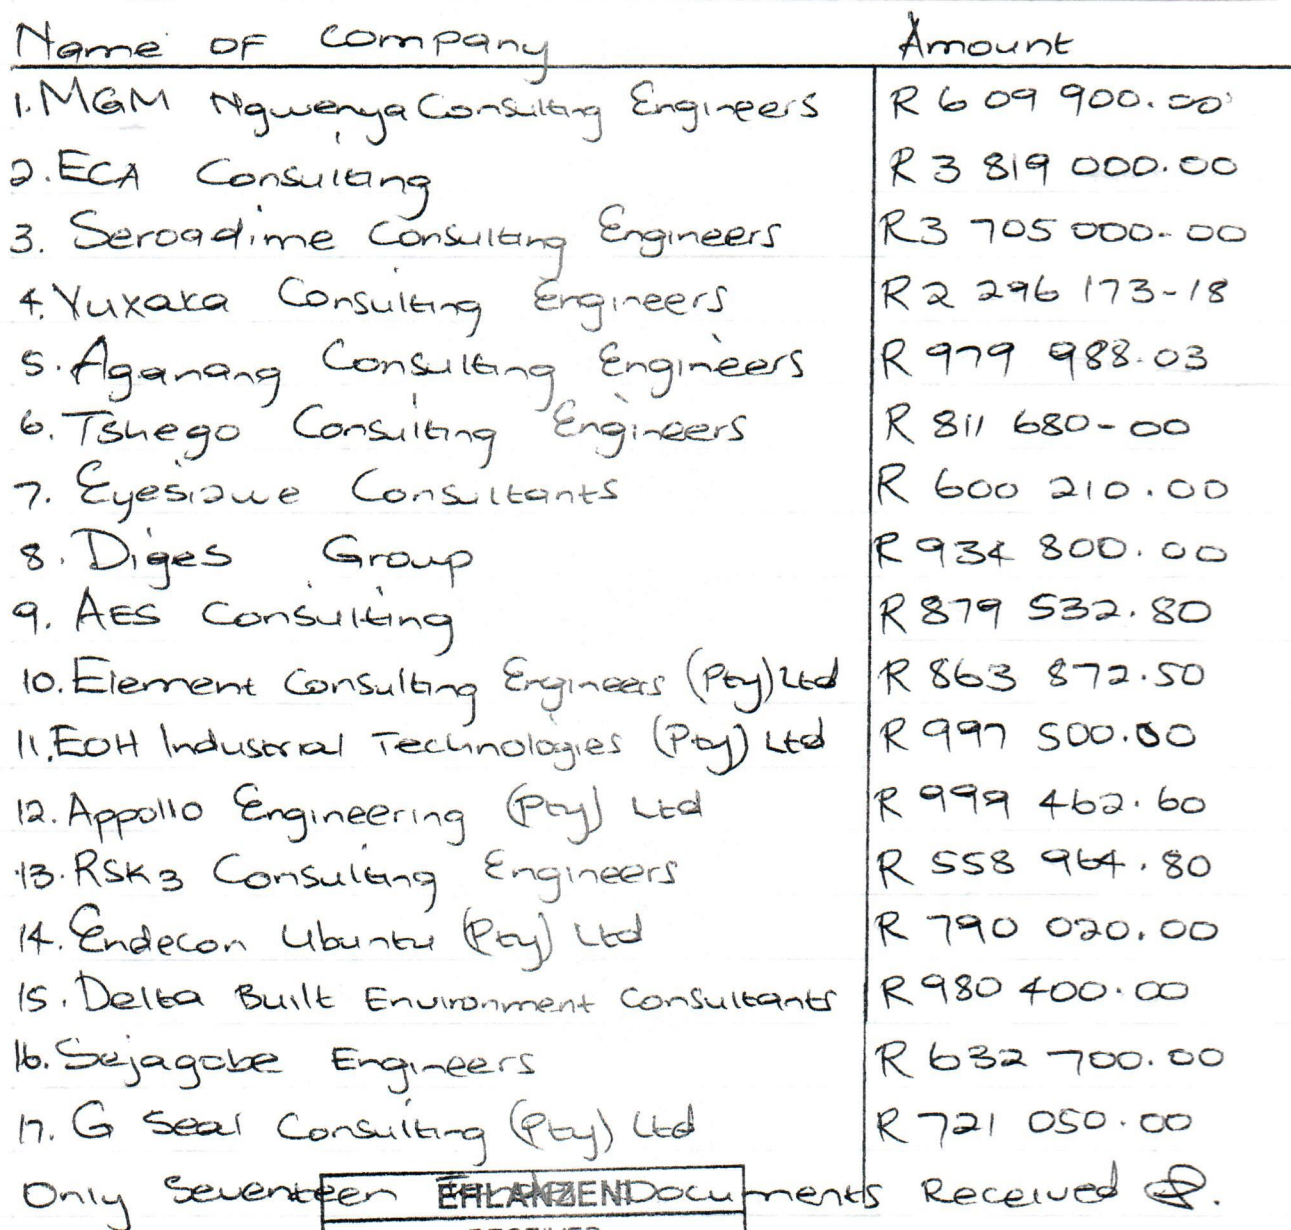 Name of Company Amount
1. MGM Ngwenya Consulting Engineers R 609 900.00
2. ECA Consulting R 3 819 000.00
3. Seroadime Consulting Engineers R3 705 000-00
4. Vuxaka Consulting Engineers R2 296 173-18
5. Aganang Consulting Engineers R 979 988.03
6. Tshego Consulting Engineers R 811 680-00
7. Eyesizwe Consultants R 600 210.00
8. Diges Group R 934 800.00
9. AES Consulting R 879 532.80
10. Element Consulting Engineers (Pty) Ltd R 863 872.50
11. EOH Industrial Technologies (Pty) Ltd R 997 500.00
12. Appollo Engineering (Pty) Ltd R 999 462.60
13. RSK3 Consulting Engineers R 558 964.80
14. Endecon Ubuntu (Pty) Ltd R 790 020.00
15. Delta Built Environment Consultants R 980 400.00
16. Sejagobe Engineers R 632 700.00
17. G Seal Consulting (Pty) Ltd R 721 050.00
Only Seventeen Documents Received
EHLANZENI